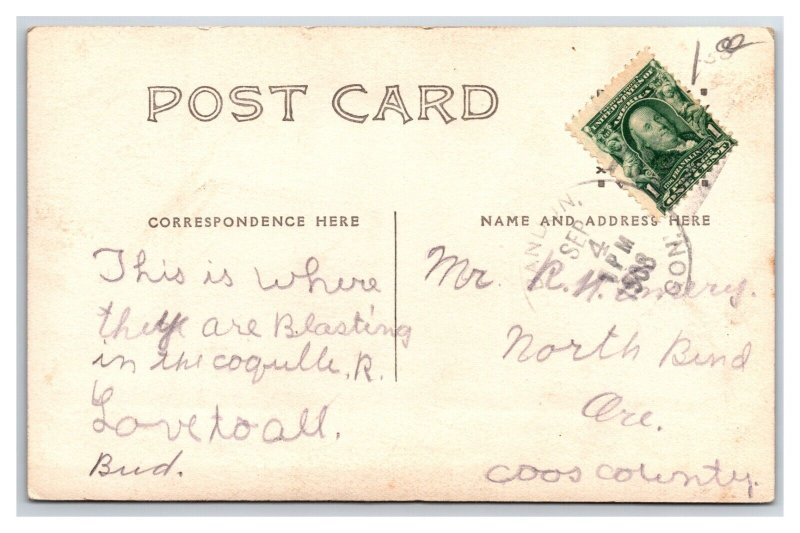 POST CARD
1.00
SERIES 1902
UNITED STATES OF
AMERICA
1 1
FRANKLIN
ONE CENT
CORRESPONDENCE HERE
NAME AND ADDRESS HERE
SEP
4
7 PM
1908
This is Where
they are Blasting
in the coquille, R.
Love to all.
Bud.
Mr. R. H.
North Bend
Ore.
Coos County.